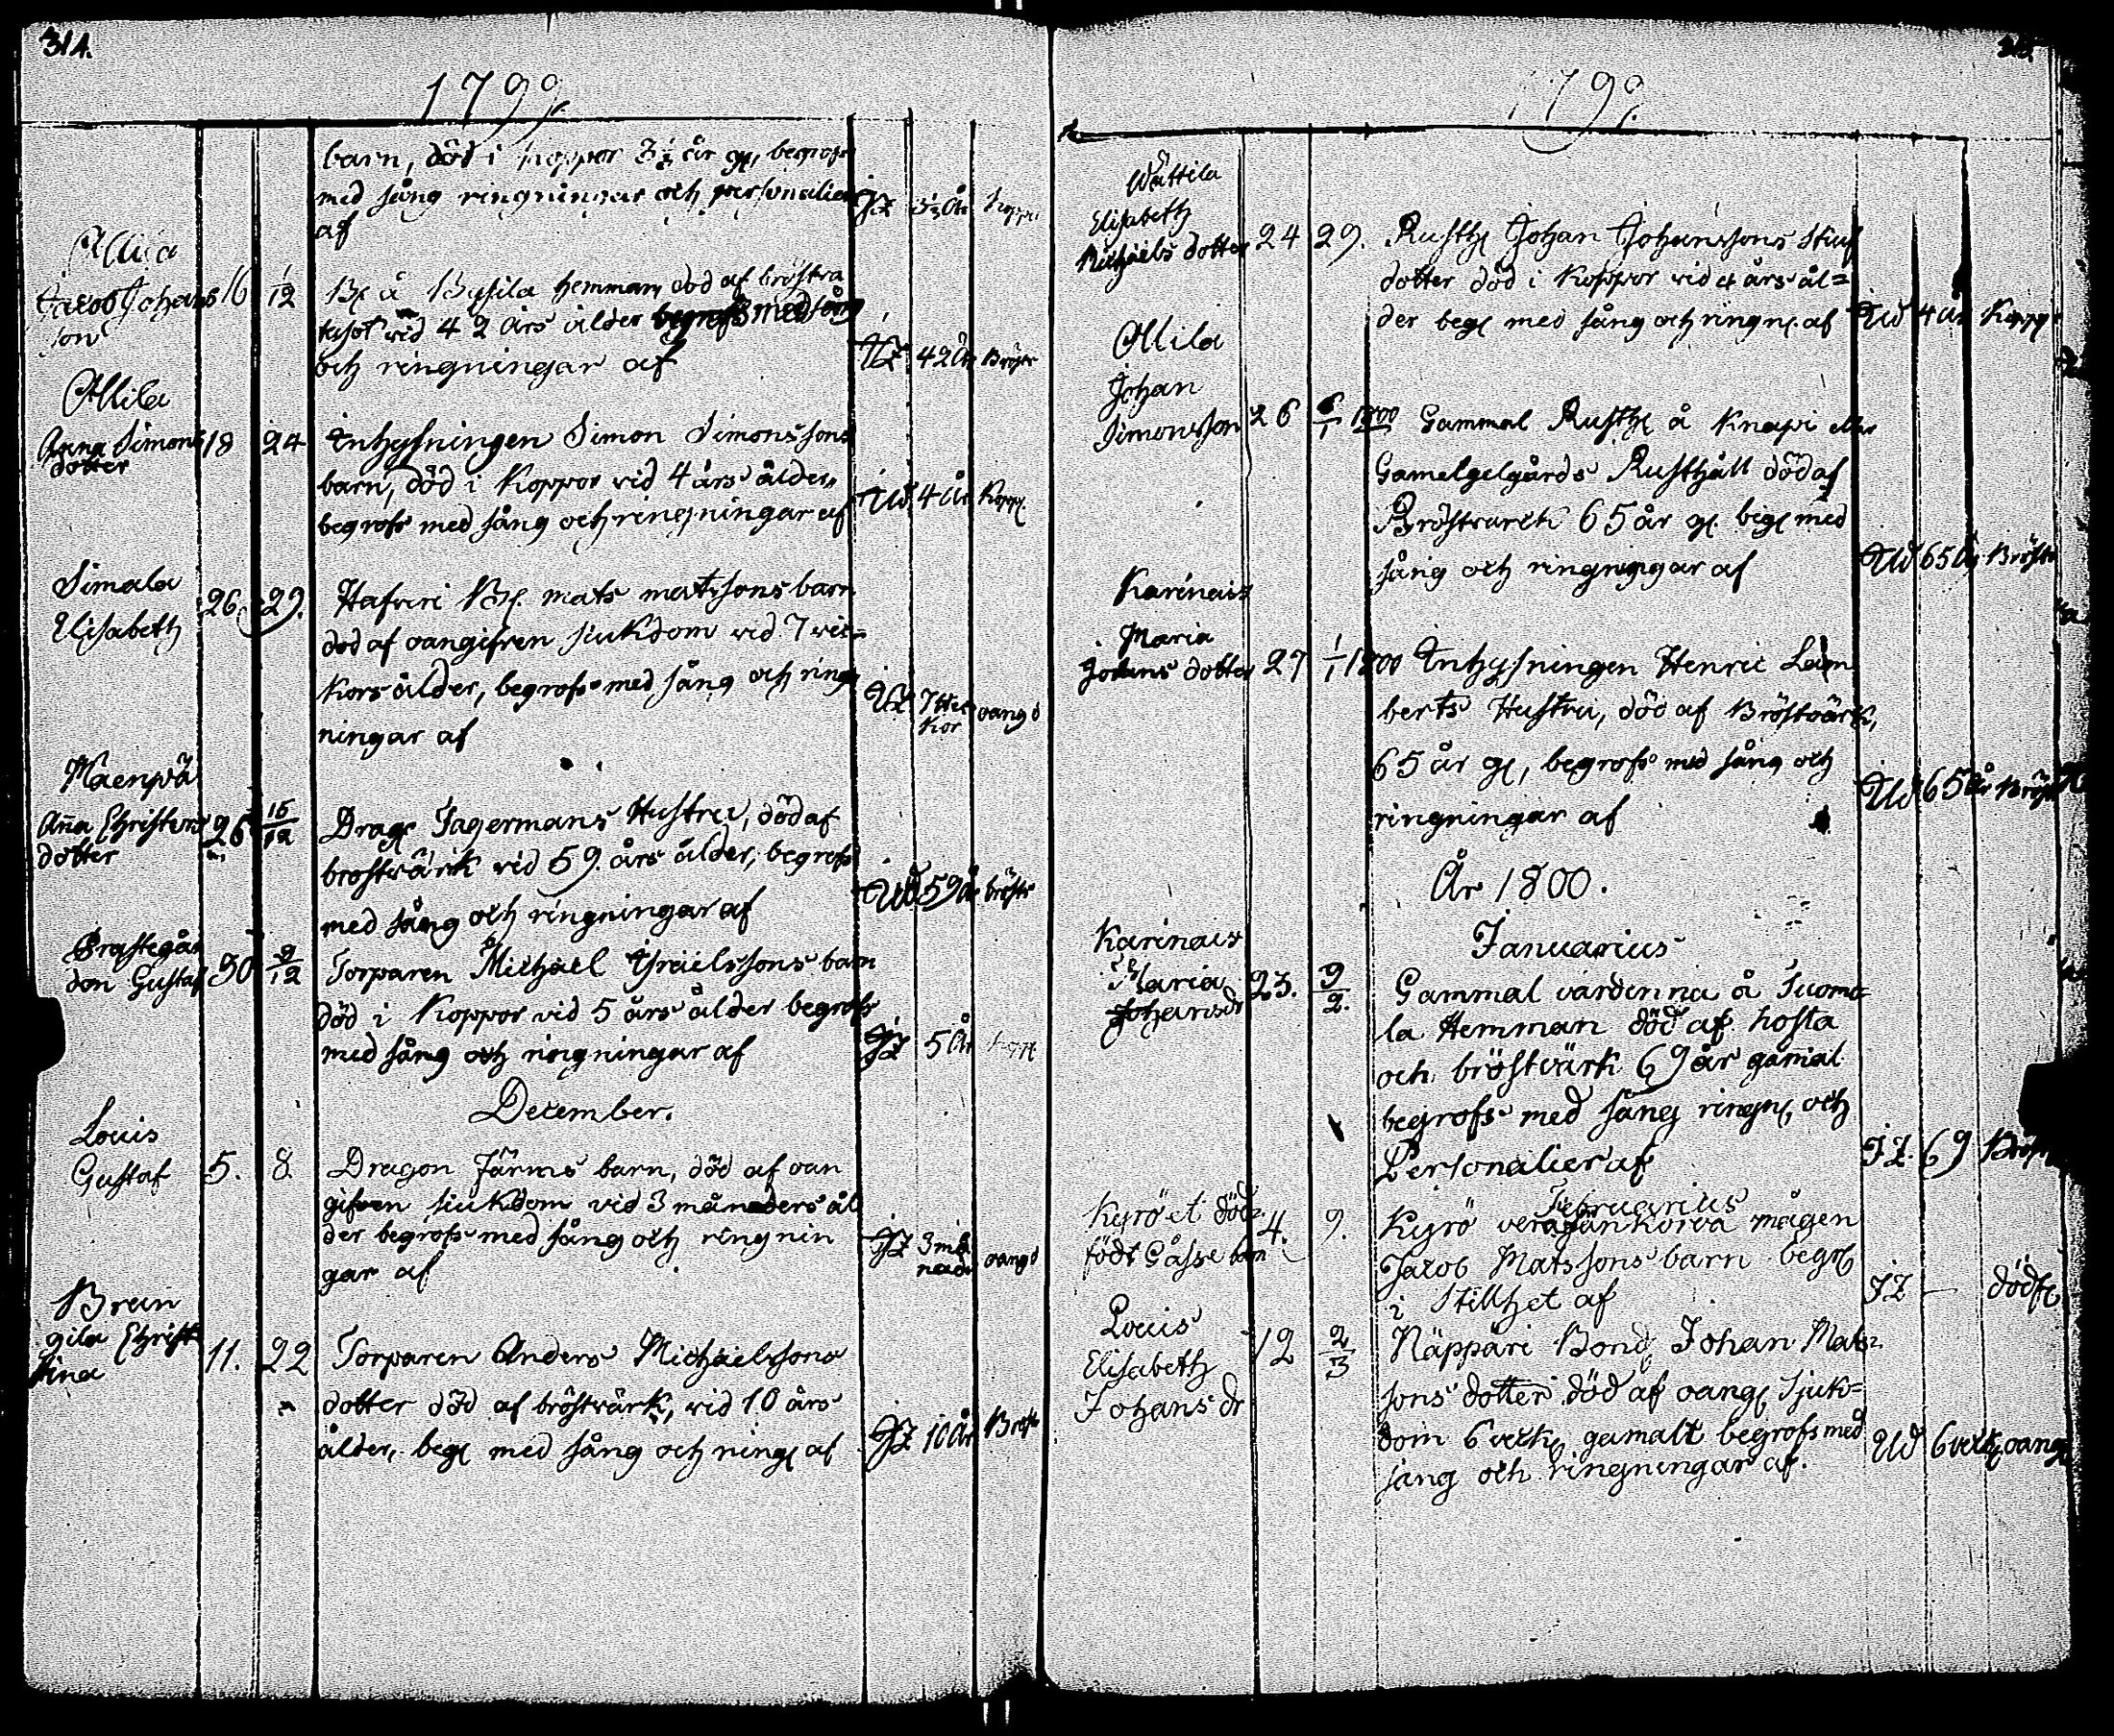 314.
1799.
barn, död i koppor 3½ år gl, begrofs
med sång ringningar och personalier
af
JZ 3½ År Kopp
Jacob Johans
son
16 1/12
Bl å hemman död af bröstra
vid 42 års ålder begrofs med sång
och ringningar af
JZ 42 År Bröst
Anna Simons
dotter
18 24
Inhysningen Simon Simonssons
barn, död i Koppor vid 4 års ålder,
begrofs med sång och ringningar af
Ud 4 År Kopp
Simala
Elisabeth
26. 29.
Hafvri Bl. mats matssons barn
död af oangifven siukdom vid 7 vec-
kors ålder, begrofs med sång och ring
ningar af
7 Vec
kor
oang d
Maenpä
Aña Christers
dotter
26 15/12
Drag Jagermans Hustru, död af
brostvärk vid 59. års ålder, begrofs
med sång och ringningar af
Ud 59 År bröstv
Prästegår
den Gustaf
30 9/12
Torparen Michael Israelssons barn
död i Koppor vid 5 års ålder begrofs
med sång och ringningar af
JZ 5 År
December.
Louis
Gustaf
5. 8
Dragon Järms barn, död af oan
gifven siukdom vid 3 månaders ål
der begrofs med sång och ringnin
gar af
JZ 3 må
nad
oang d
Brun
gila Christ
tina
11. 22
Torparen Anders Michaelssons
dotter död af bröstvärk, vid 10 års
ålder, begl med sång och ringl af
JZ 10 År Bröst
1799.
Wättila
Elisabeth
Michaels dotter
24 29.
Rusth Johan Johanssons stiuf
dotter död i Koppor vid 4 års ål=
der begl med sång och ringnl af
Ud 4 År Kopp
Johan
Simonsson
26 6/1 1800
Gammal Rusth å Knapi eller
Gamelgelgårds Rusthåll död af
Bröstvärck 65 år gl begl med
sång och ringningar af
Ud 65 År Bröst
Karinais
Maria
Johans dotter
27 1/1 1800
Inhysningen Henric Lam
berts Hustru, död af Bröstvärk,
65 år gl, begrofs med sång och
ringningar af
Ud 65 År Bröst
År 1800.
Januarius
Karinais
Maria
Johansdr
23. 9/2.
Gammal värdinna å Tuoma=
la Hemman död af hosta
och bröstvärk 69 år gamal
begrofs med sång ringnl, och
Personalier af
JZ. 69 Bröst
Februarius
Kyrö et död=
födt Gåsse barn
4. 9.
Kyrö mågen
Jacob Matssons barn begrl
i Stillhet af
JZ — dödf
Louis
Elisabeth
Johansdr
12 2/3
Näppäri Bond Johan Mats=
sons dotter död af oangl Sjuk=
dom 6 veckl gamalt begrofs med
sång och ringningar af.
Ud 6 veckl oangl